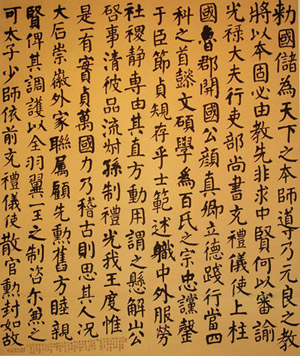 勅國儲為天下之本師導乃元良之教
將以本固必由教先非求中賢何以審諭
光禄大夫行吏部尚書充禮儀使上柱
國魯郡開國公顏真卿立德踐行當四
科之首懿文碩學為百氏之宗忠讜罄
于臣節貞規存乎士範述職中外服勞
社稷靜專由其直方動用謂之懸解山公
啓事清彼品流叔孫制禮光我王度惟
是一有實貞萬國力乃稽古則思其人況
大后崇徽外家聯屬顧先勳舊方睦親
賢俾其調護以全羽翼一王之制咨尒兼之
可太子少師依前充禮儀使散官勳封如故